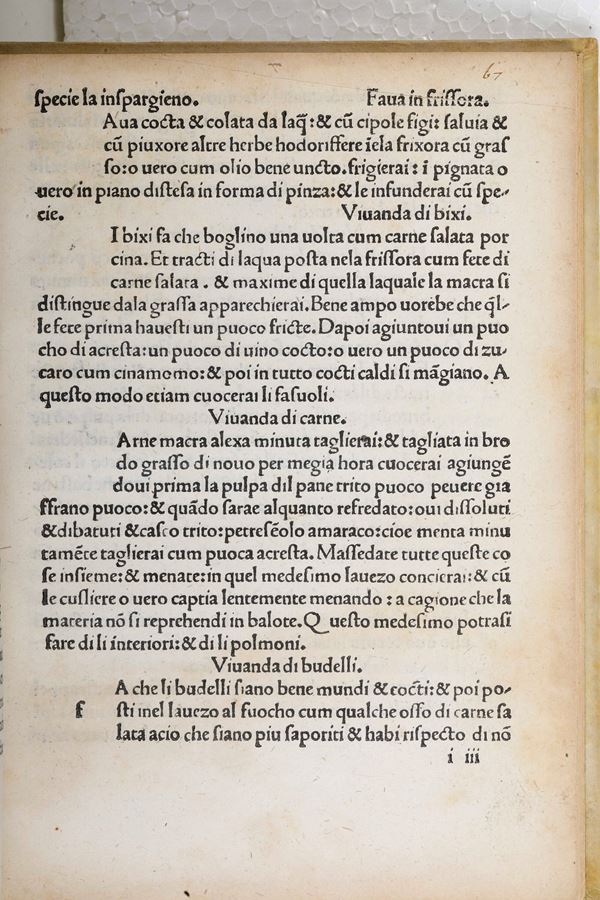 67
specie la inspargieno. Faua in frissora.
Aua cocta & colata da laq̃: & cũ cipole figi: saluia &
cũ piuxore altre herbe hodorissere ĩela frixora cũ gras
so: o uero cum olio bene uncto. frigierai: ĩ pignata o
uero in piano distesa in forma di pinza: & le infunderai cũ spe-
cie. Viuanda di bixi.
I bixi fa che boglino una uolta cum carne salata por
cina. Et tracti di laqua posta nela frissora cum fete di
carne salata. & maxime di quella laquale la macra si
distingue dala grassa apparechierai. Bene ampo uorebe che q̃l-
le fete prima hauesti un puoco fricte. Dapoi agiuntoui un puo
cho di acresta: un puoco di uino cocto: o uero un puoco di zu-
caro cum cinamomo: & poi in tutto cocti caldi si mãgiano. A
questo modo etiam cuocerai li fasuoli.
Viuanda di carne.
Arne macra alexa minuta taglierai: & tagliata in bro
do grasso di nouo per megia hora cuocerai agiungẽ
doui prima la pulpa dil pane trito puoco peuere gia
ffrano puoco: & quãdo sarae alquanto refredato: oui dissoluti
& dibatuti & casco trito: petresẽolo amaraco: cioe menta minu
tamẽte taglierai cum puoca acresta. Massedate tutte queste co
se insieme: & menate: in quel medesimo lauezo concierai: & cũ
le cusliere o uero captia lentemente menando: a cagione che la
materia nõ si reprehendi in balote. Questo medesimo potrasi
fare di li interiori: & di li polmoni.
Viuanda di budelli.
A che li budelli siano bene mundi & cocti: & poi po-
f sti inel lauezo al fuocho cum qualche osso di carne sa
lata acio che siano piu saporiti & habi rispecto di nõ
i iii